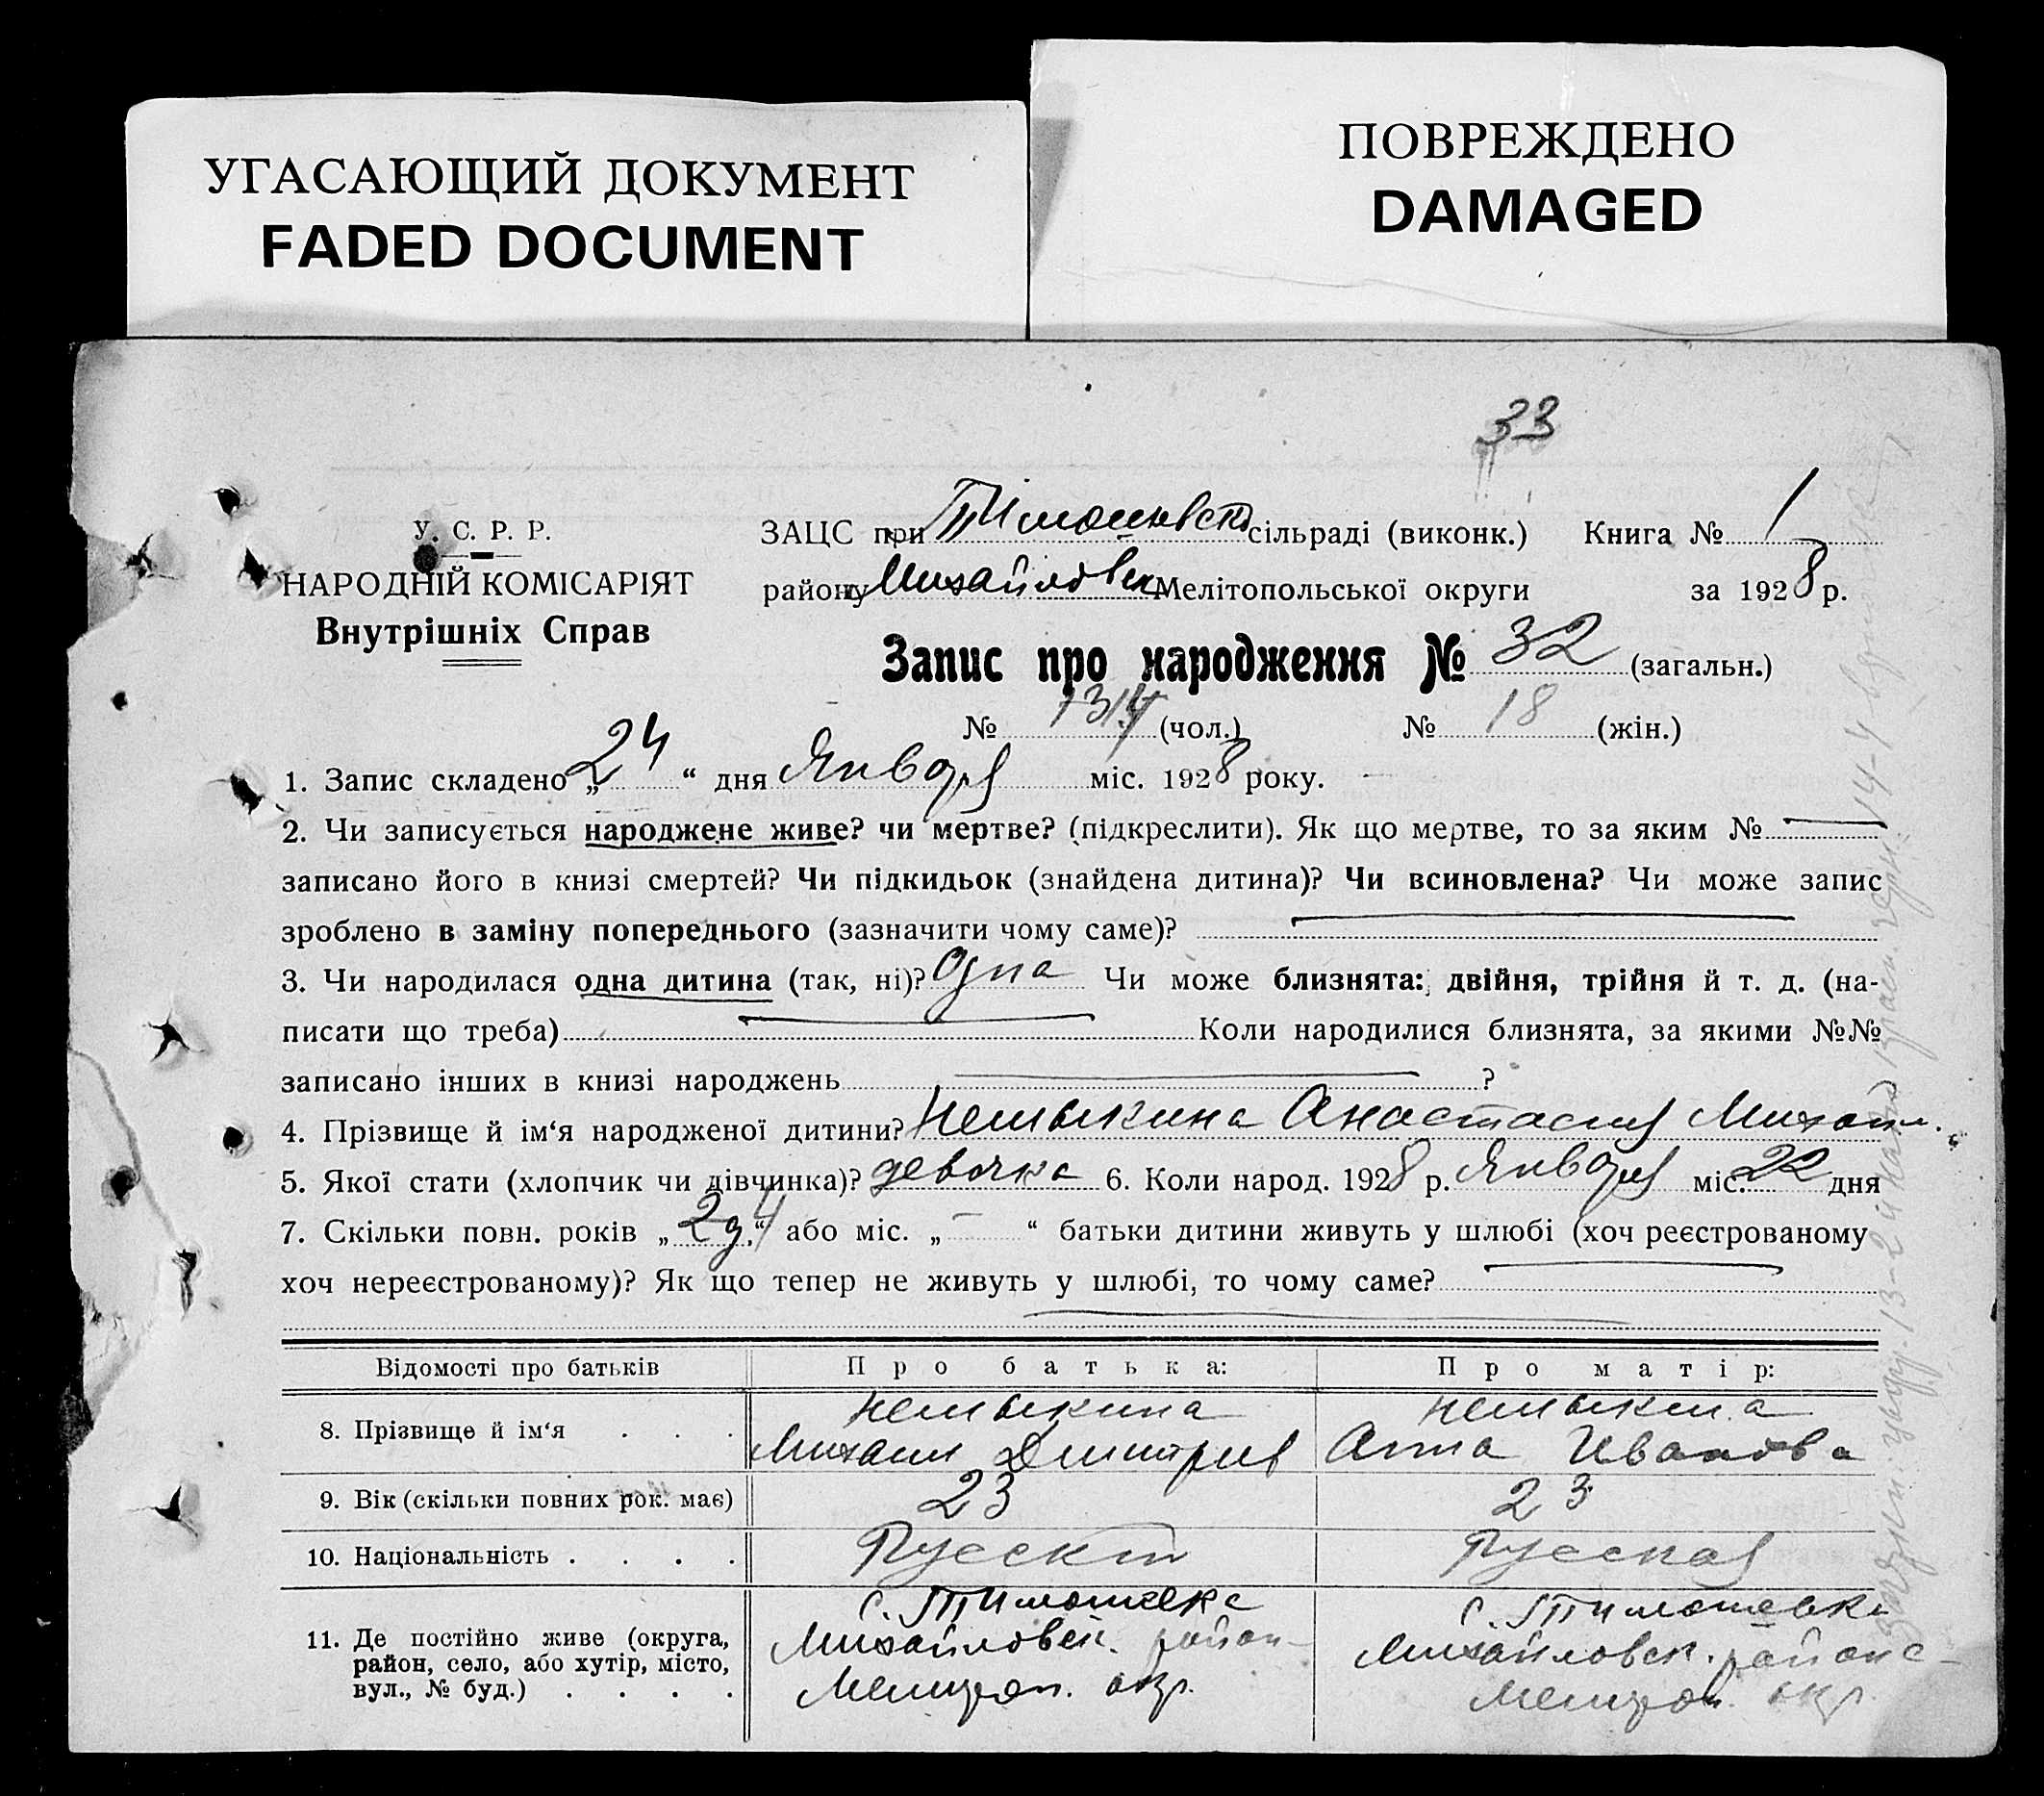 УГАСАЮЩИЙ ДОКУМЕНТ
FADED DOCUMENT
ПОВРЕЖДЕНО
DAMAGED
33
У. С. Р. Р.
НАРОДНІЙ КОМІСАРІЯТ
Внутрішніх Справ
ЗАЦС при Тимошевск сільраді (виконк.) Книга № 1
району Михайловск Мелітопольської округи за 1928 р.
Запис про народження № 32 (загальн.)
№ (чол.) № 18 (жін.)
1. Запис складено „24“ дня Января міс. 1928 року.
2. Чи записується народжене живе? чи мертве? (підкреслити). Як що мертве, то за яким №
записано його в книзі смертей? Чи підкидьок (знайдена дитина)? Чи всиновлена? Чи може запис
зроблено в заміну попереднього (зазначити чому саме)?
3. Чи народилася одна дитина (так, ні)? Одна Чи може близнята: двійня, трійня й т. д. (на-
писати що треба) Коли народилися близнята, за якими №№
записано інших в книзі народжень ?
4. Прізвище й ім‘я народженої дитини? Немыкина Анастасия Михаил.
5. Якої стати (хлопчик чи дівчинка)? девочка 6. Коли народ. 1928 р. Января міс. 22 дня
7. Скільки повн. років „2 “ або міс. „ “ батьки дитини живуть у шлюбі (хоч реєстрованому
хоч нереєстрованому)? Як що тепер не живуть у шлюбі, то чому саме?
Відомості про батьків Про батька: Про матір:
8. Прізвище й ім‘я . . . Немыкина Михаил Дмитриев Немыкина Анна Иванова
9. Вік (скільки повних рок. має) 23 23
10. Національність . . . . Русский Русская
11. Де постійно живе (округа, с. Тимошевка с. Тимошевка
район, село, або хутір, місто, Михайловск. район Михайловск. района
вул., № буд.) . . . . Мелитоп. окр. Мелитоп. окр.